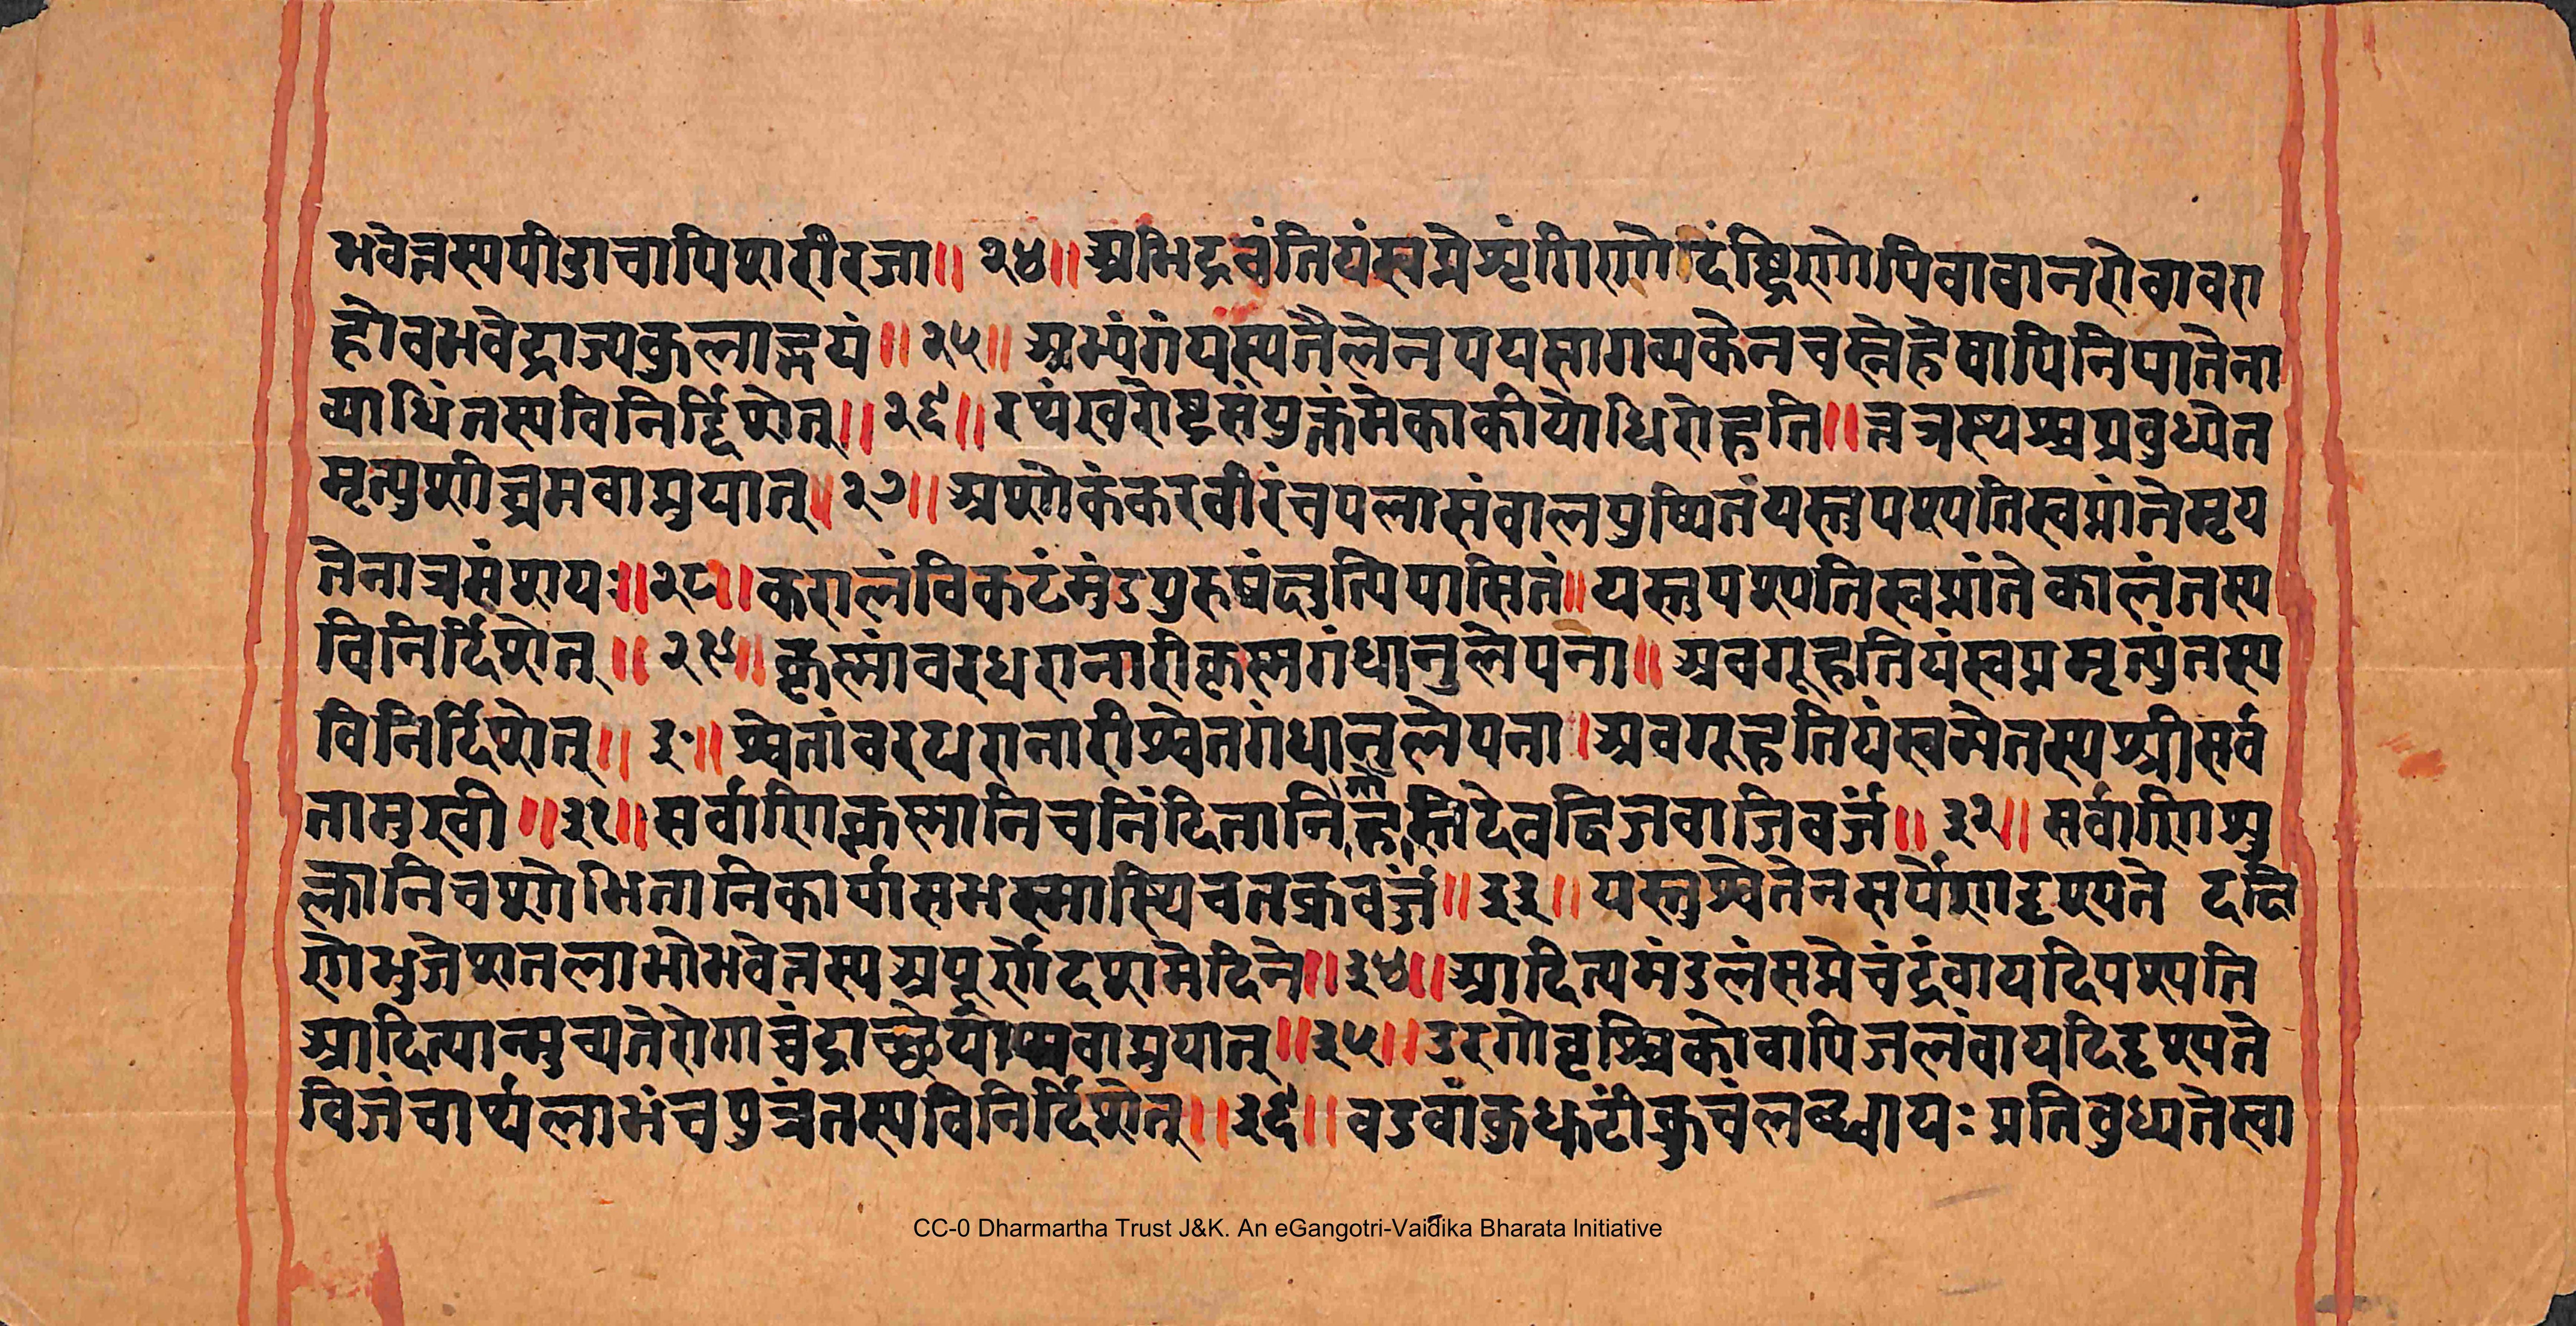 भवेत्तस्यपीडाचापिशरीरजा॥ २४॥ अभिद्रवंतियंस्वप्नेशृंगीणोदंष्ट्रिणोपिवावानरोवावरा
होवभवेद्राज्यकुलाद्भयं॥ २५॥ अभ्यंगंयस्यतैलेनपयसागव्यकेनचस्नेहेषापिनिपातेना
व्याधिंतस्यविनिर्द्दिशेत्॥ २६॥ रथंखरोष्ट्रसंयुक्तंमेकाकीयोधिरोहति॥ तत्रस्यश्चप्रवुध्येत
मृत्युशीघ्रमवाप्नुयात्॥ २७॥ अशोकंकरवीरंचपलासंवालपुष्पितंयस्तुपश्यतिस्वप्नांतेमृय
तेनात्रसंशयः॥ २८॥ करालंविकटंमुंडपुरुषंक्षुत्पिपासितं॥ यस्तुपश्यतिस्वप्नांतेकालंतस्य
विनिर्दिशेत्॥ २९॥ कृस्नांवरधरानारीकृस्नगंधानुलेपना॥ अवगूहतियंस्वप्नमृत्युंतस्य
विनिर्दिशेत्॥ ३०॥ श्वेतांवरधरानारीश्वेतगंधानुलेपना। अवगूहतियंस्वप्नेतस्यश्रीसर्व
नामुखी॥ ३१॥ सर्वाणिकृस्नानिचनिंदितानि हस्तिदेवद्विजवाजिवर्जं॥ ३२॥ सर्वाणिशु
क्लानिचशोभितानिकार्पासभस्मास्थिचतक्रवर्जं॥ ३३॥ यस्तुश्वेतेनसर्पेणदृश्यते दक्षि
णेभुजेशतलाभोभवेत्तस्यअपूर्णेदशमेदिने॥ ३४॥ आदित्यमंडलंसप्नेचंद्रंवायदिपश्यति
आदित्यान्मुच्यतेरोगाच्चंद्रा वाप्नुयात्॥ ३५॥ उरगोवृश्चिकोवापिजलंवायदिदृश्यते
विजंचार्थलाभंचपुत्रंतस्यविनिर्दिशेत्॥ ३६॥ वडवांकुक्कटींक्रुचंलब्ध्वायः प्रतिवुध्यतेस्वा
CC-0 Dharmartha Trust J&K. An eGangotri-Vaidika Bharata Initiative